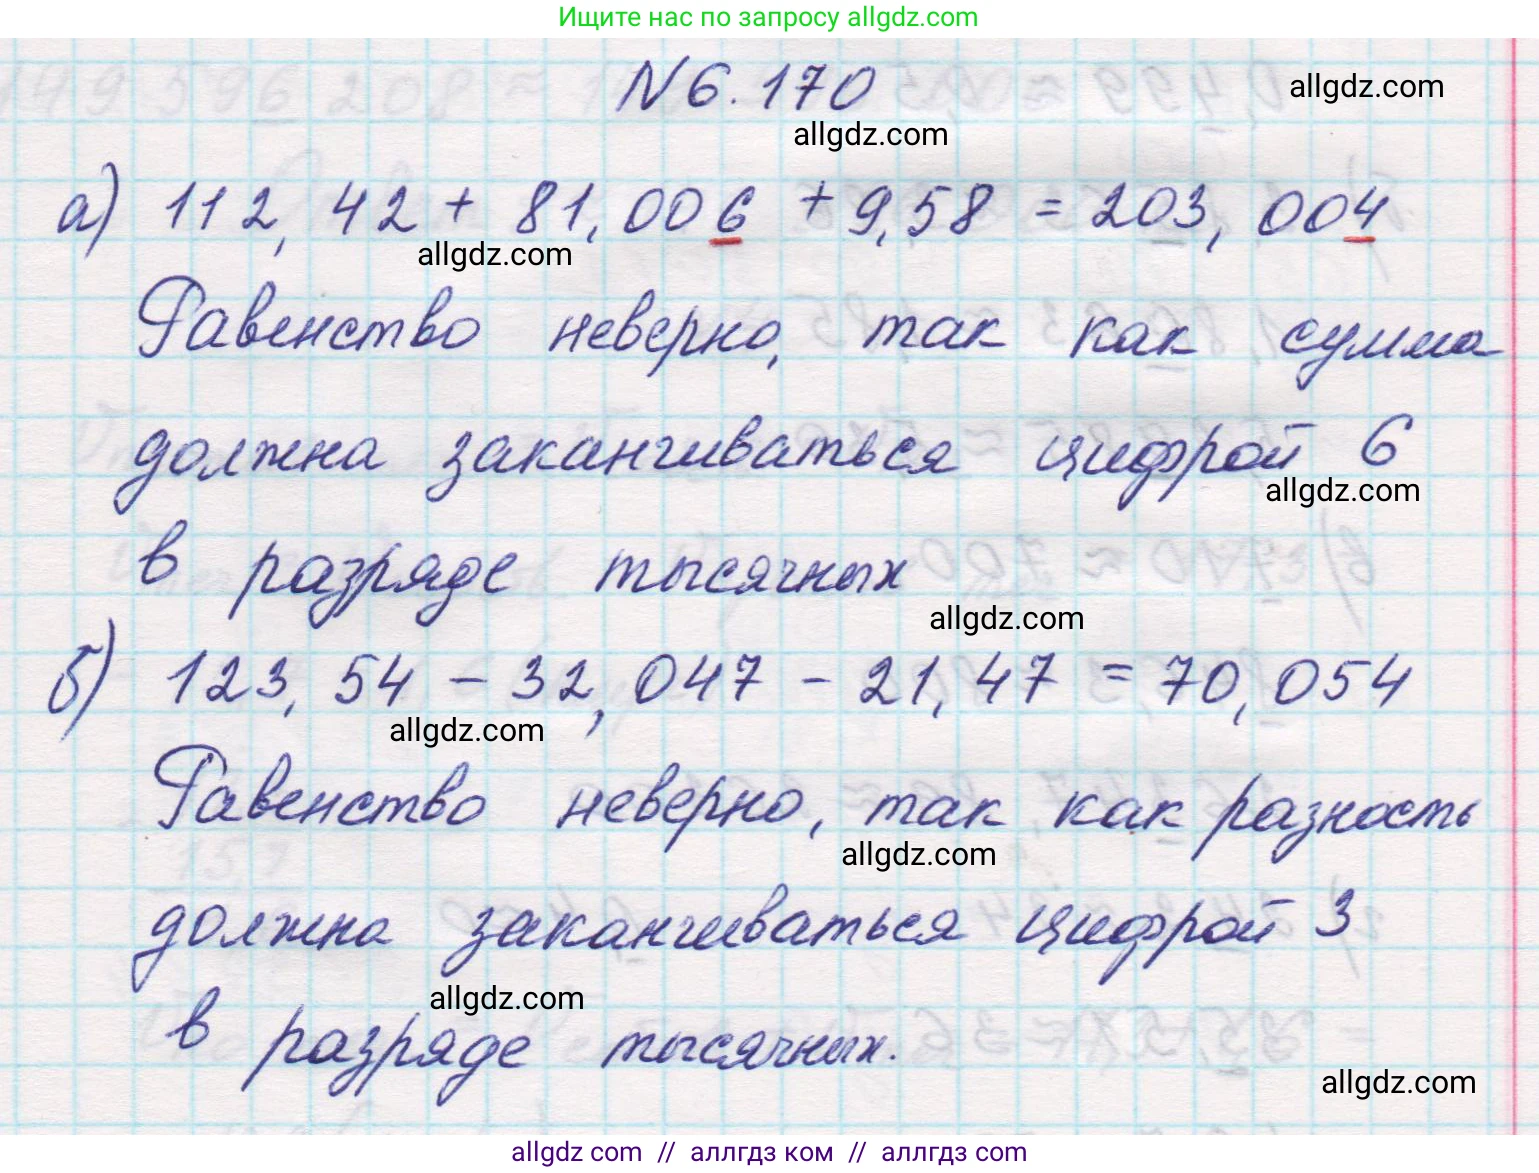 Ищите нас по запросу allgdz.com
N 6.170
allgdz.com
allgdz.com
а) 112,42 + 81,006 + 9,58 = 203,004
allgdz.com
Равенство неверно, так как сумма
должна заканчиваться цифрой 6
allgdz.com
в разряде тысячных
allgdz.com
б) 123,54 - 32,047 - 21,47 = 70,054
allgdz.com
Равенство неверно, так как разность
allgdz.com
должна заканчиваться цифрой 3
allgdz.com
в разряде тысячных.
allgdz.com
allgdz com // аллгдз ком // аллгдз com